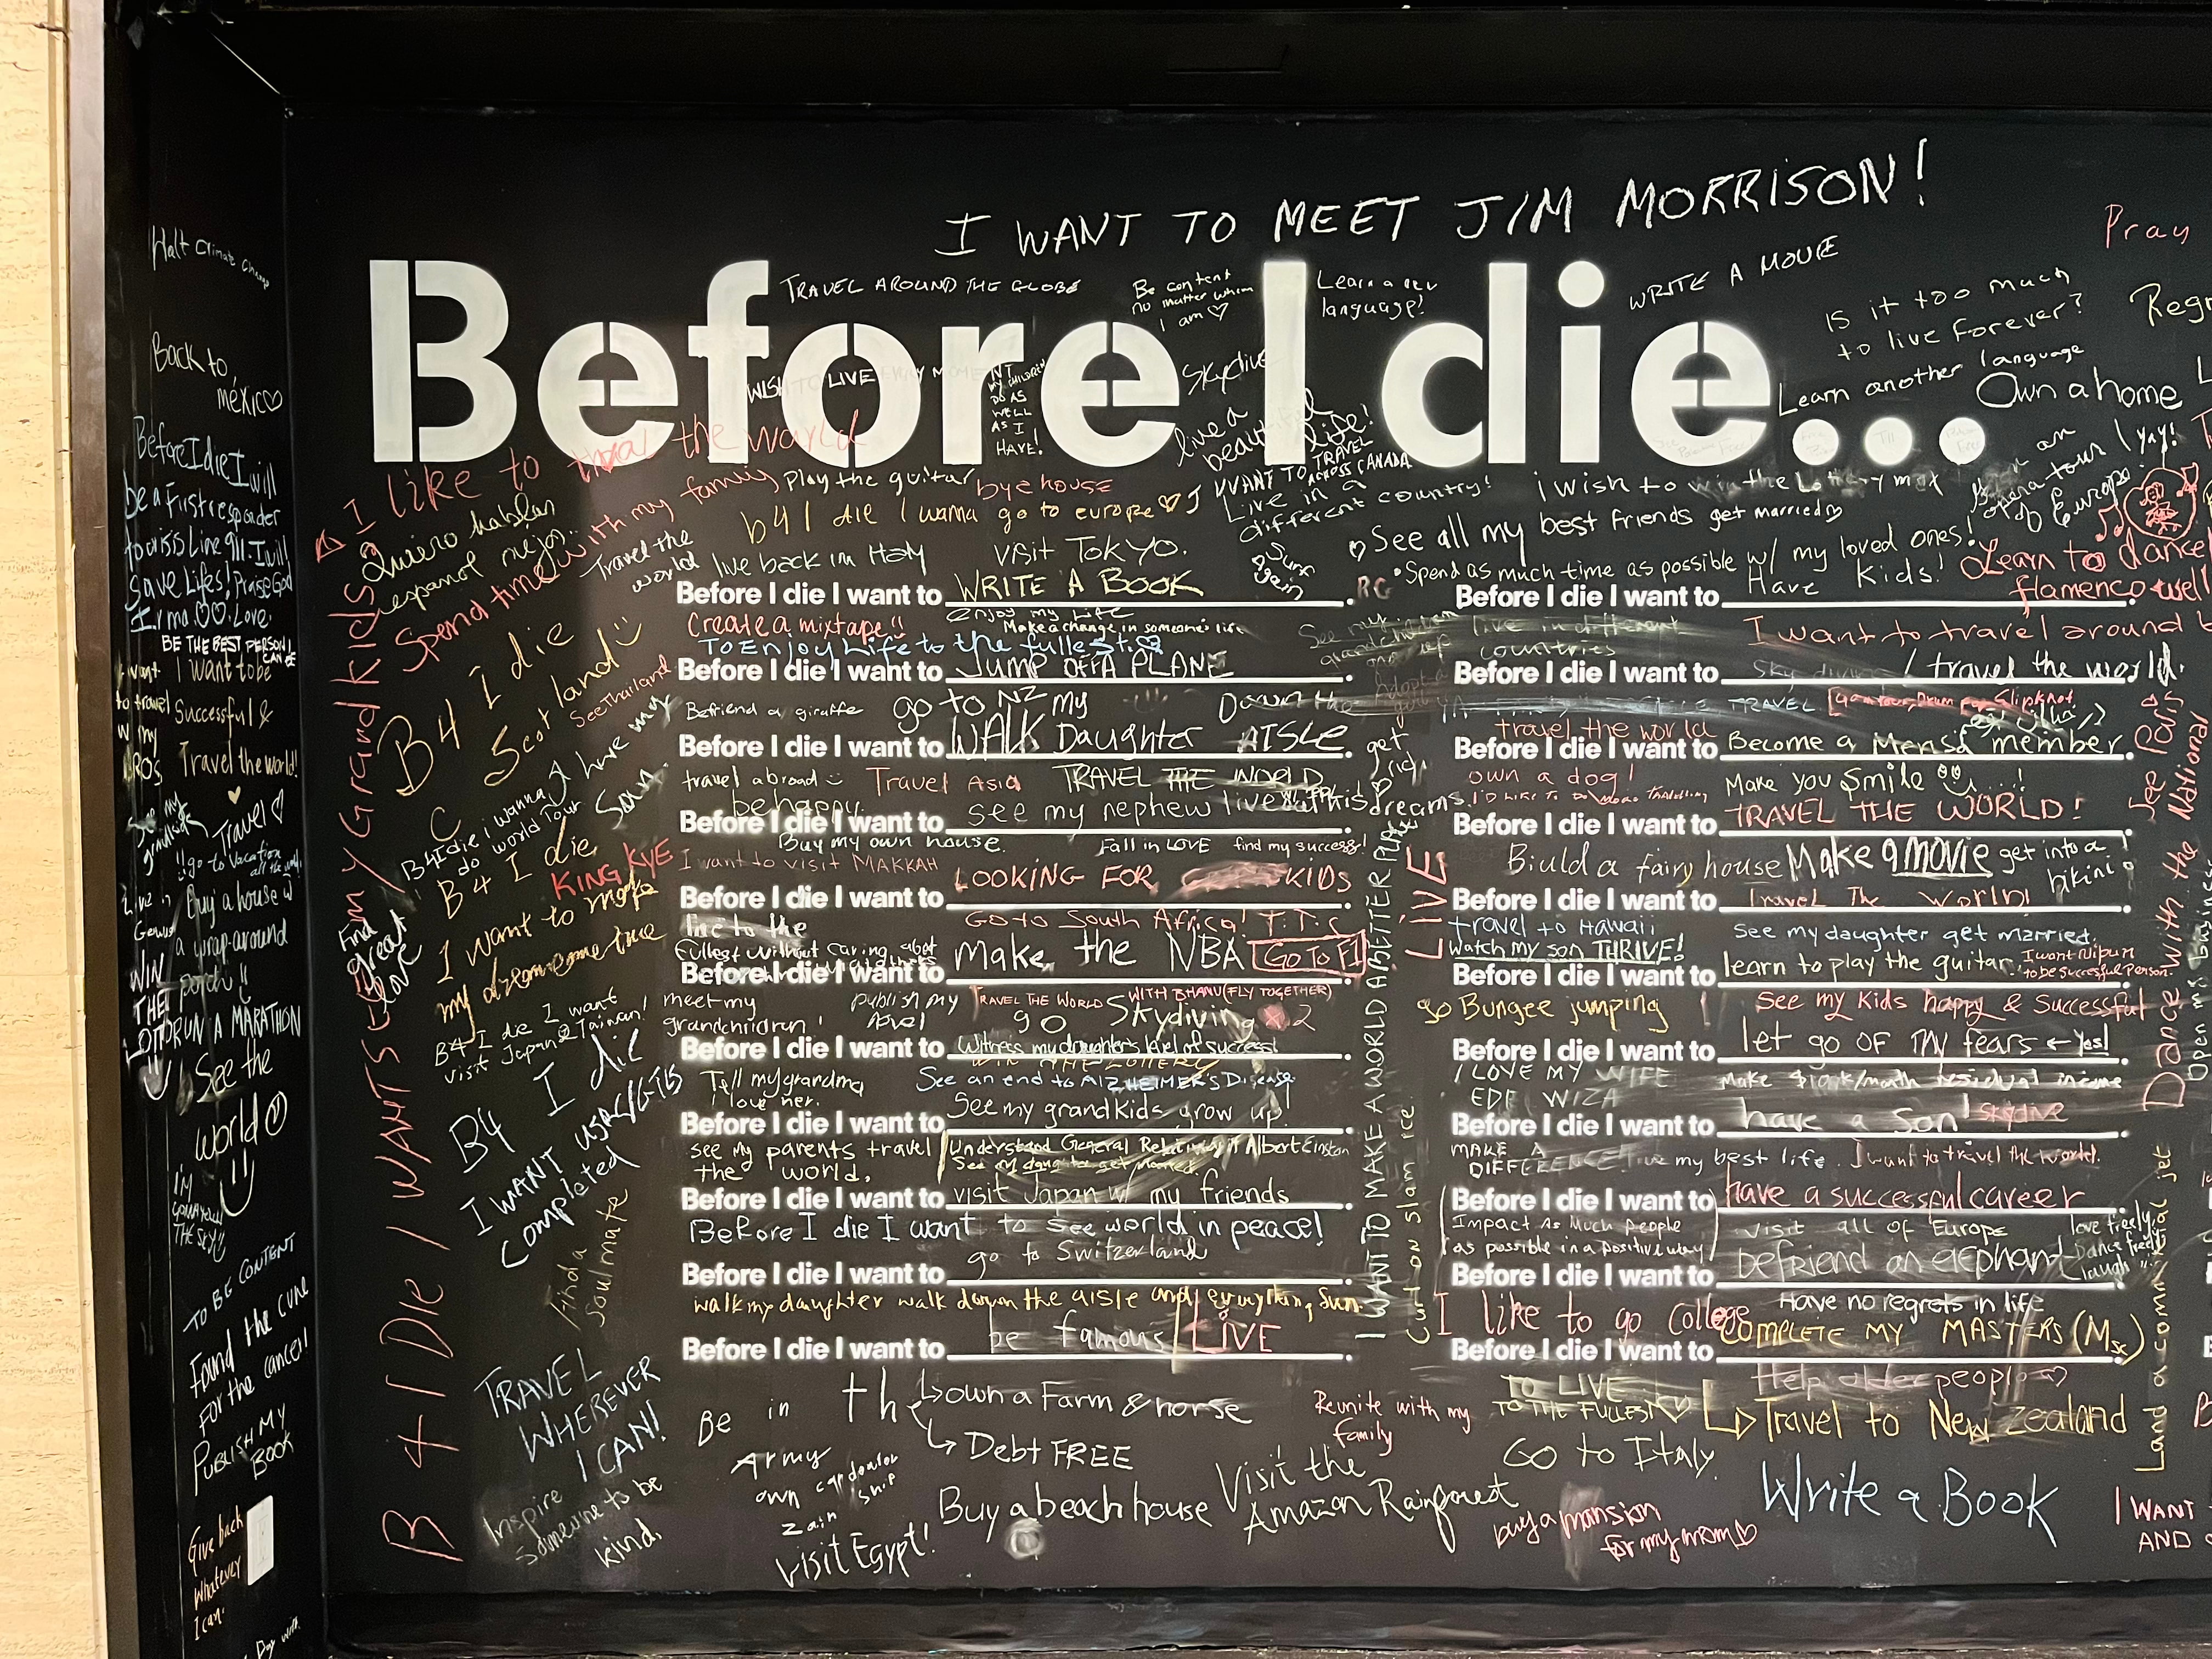 Halt Climate Change
Back to
méxico
Before I die I will
be a first responder
to crisis Line 911. I will
Save Lifes! Praise God
Irma ♡♡. Love.
BE THE BEST PERSON I
CAN BE
I want
to travel
w my
I want to be
Successful &
Travel the world!
See my
grandkids
Travel ♡
!! go to Vacation
all the
Live in
Buy a house w
a wrap-around
porch !!
WIN
THE
LOTTO
RUN A MARATHON
See the
world ☺
I'M
THE SKY
TO BE CONTENT
Found the cure
for the cancer!
PUBLISH MY
BOOK
Give back
Whatever
I can.
I WANT TO MEET JIM MORRISON!
Before I die...
TRAVEL AROUND THE GLOBE
Be content
no matter whom
I am ♡
Learn a new
language!
WRITE A MOVIE
Pray
IS it too much
to live Forever?
Learn another language
Own a home
WISH TO LIVE
MY CHILDREN
DO AS
WELL
AS I
HAVE!
Skydive
live a
beautiful
life!
I WANT TO TRAVEL
ACROSS CANADA
Live in a
different country!
Surf
Again
I like to traval the world
Quiero hablar
espanol mejor..
Spend time with my family
Play the guitar
bye house
b4 I die I wanna go to europe ♡
Travel the
world
live back in Italy
visit TOKYO.
i wish to win the Lottery max
♡ See all my best friends get married ♡
• Spend as much time as possible w/ my loved ones!
Have Kids!
opera tour
of Europe
yay!
Learn to dance
flamenco well
B4 I die
Scotland ☺
See Thailand
B4 I die i wanna
do world Tour
B4 I die
I have my
Son.
KING KYE
I want to make
my dream come true
Find
great
love
B4 I die I want
visit Japan & Taiwan!
B4 I die
I WANT
completed
find a
soulmate
B4 I Die I WANT See my Grand Kids
TRAVEL
WHEREVER
I CAN!
Inspire
someone to be
kind.
Before I die I want to WRITE A BOOK
Enjoy my life
Create a mixtape!!
Make a change in someone's life
To Enjoy Life to the fullest
Before I die I want to JUMP OFF A PLANE
Befriend a giraffe
go to NZ
Before I die I want to WALK my Daughter Down the AISLE
travel abroad ☺
Travel Asia
TRAVEL THE WORLD
be happy.
Before I die I want to see my nephew live out his dreams.
get
rich
Buy my own house.
Fall in LOVE
find my success!
I want to visit MAKKAH
Before I die I want to LOOKING FOR KIDS
Go to South Africa! T.T.C
live to the
Fullest without caring abot
Before I die I want to Make the NBA
GO TO F1
meet my
grandchildren!
Publish my
Novel
TRAVEL THE WORLD WITH BHANU (FLY TOGETHER)
go Skydiving x2
Before I die I want to Witness my daughter's level of success!
WIN THE LOTTERY
Tell my grandma
I love her.
See an end to ALZHEIMER'S Disease
Before I die I want to See my grandkids grow up!
see my parents travel
the world.
Understand General Relativity Albert Einstein
See my daughter get married
Before I die I want to visit Japan w/ my friends
Before I die I want to see world in peace!
go to Switzerland
Before I die I want to
walk my daughter walk down the aisle and everything Sun
Before I die I want to be famous LIVE
I WANT TO MAKE A WORLD A BETTER PLACE
Curl on Slam ice.
LIVE
RG
Before I die I want to
live in different
countries
I want to travel around
Before I die I want to Sky diving / travel the world.
TRAVEL
go on tour, Drum for Slipknot
travel the world
Before I die I want to Become a Mensa member
own a dog!
I'D LIKE TO DO MORE TRAVELLING
Make you Smile
Before I die I want to TRAVEL THE WORLD!
Biuld a fairy house
Make a movie
get into a
bikini
Before I die I want to Travel The World!
travel to Hawaii
Watch my son THRIVE!
See my daughter get married.
Before I die I want to learn to play the guitar
I want Nibun
to be Successful Person.
go Bungee jumping
See my Kids happy & Successful
Before I die I want to let go of my fears ← Yes!
I LOVE MY WIFE
EDF WIZA
Make $10K/month residual income
Before I die I want to have a Son!
Skydive
MAKE A
DIFFERENCE!
live my best life.
I want to travel the world.
Before I die I want to have a successful career
Impact As Much People
as possible in a positive way
Visit all of Europe
love freely
Dance freely
laugh
Before I die I want to befriend an elephant
Have no regrets in life
I like to go College
Before I die I want to COMPLETE MY MASTERS (Msc)
Help older people ♡
Joe
Dance with the National
Land a commercial jet
Be in th
Army
→ own a Farm & horse
→ Debt FREE
own car dealer
ship
Zain
Visit Egypt!
Buy a beach house
Visit the
Amazon Rainforest
Reunite with my
family
TO LIVE
TO THE FULLEST ♡
→ Travel to New Zealand
Go to Italy.
buy a mansion
for my mom ♡
Write a Book
I WANT
AND